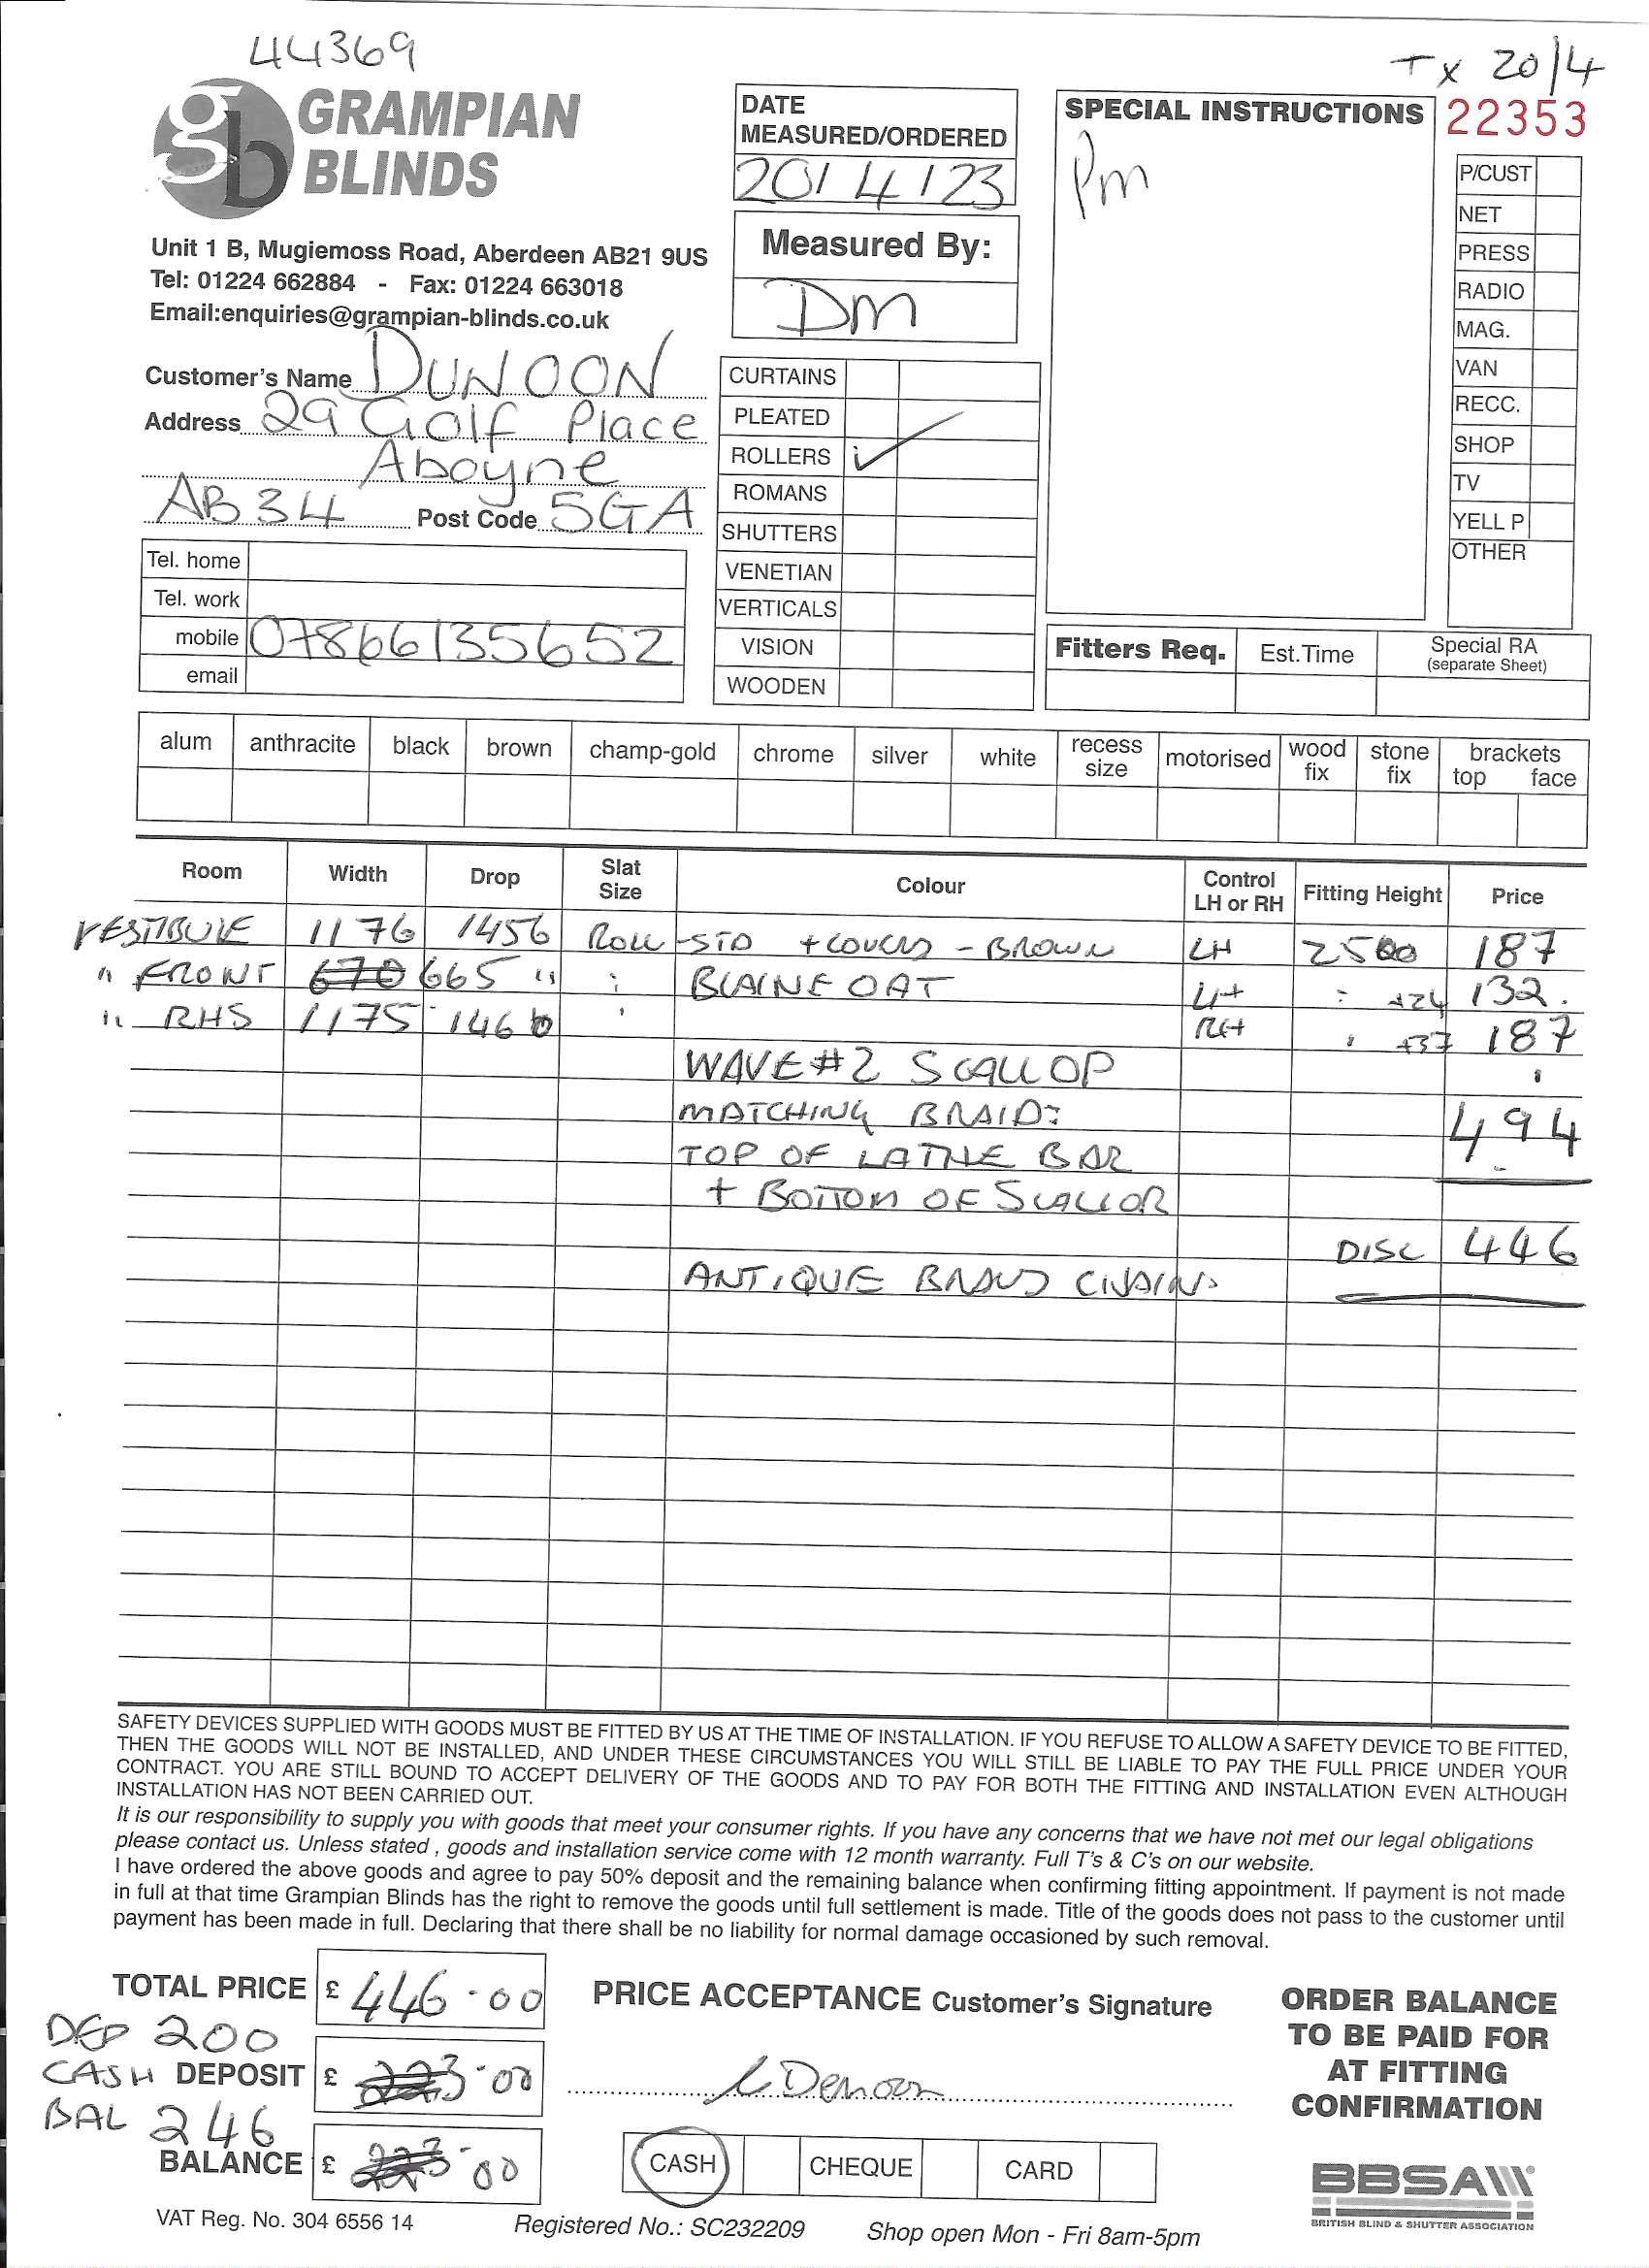 44369
Tx 20/4
GRAMPIAN
BLINDS
Unit 1 B, Mugiemoss Road, Aberdeen AB21 9US
Tel: 01224 662884 - Fax: 01224 663018
Email:enquiries@grampian-blinds.co.uk
DATE
MEASURED/ORDERED
20/4/23
Measured By:
DM
SPECIAL INSTRUCTIONS
Pm
22353
P/CUST
NET
PRESS
RADIO
MAG.
VAN
RECC.
SHOP
TV
YELL P
OTHER
Customer's Name DUNOON
Address 29 Golf Place
Aboyne
AB34 Post Code 5GA
Tel. home
Tel. work
mobile 07866135652
email
CURTAINS
PLEATED
ROLLERS ✓
ROMANS
SHUTTERS
VENETIAN
VERTICALS
VISION
WOODEN
Fitters Req. Est.Time Special RA
(separate Sheet)
alum anthracite black brown champ-gold chrome silver white recess size motorised wood fix stone fix brackets top face
Room Width Drop Slat Size Colour Control LH or RH Fitting Height Price
VESTIBULE 1176 1456 ROLL -STD + COVERS - BROWN LH 2500 187
" FRONT 670 665 " : BLAINE OAT LH : +24 132.
" RHS 1175 1460 ' RH +37 187
WAVE #2 SCALLOP
MATCHING BRAID: 494
TOP OF LATHE BAR
+ BOTTOM OF SCALLOP
DISC 446
ANTIQUE BRASS CHAINS
SAFETY DEVICES SUPPLIED WITH GOODS MUST BE FITTED BY US AT THE TIME OF INSTALLATION. IF YOU REFUSE TO ALLOW A SAFETY DEVICE TO BE FITTED,
THEN THE GOODS WILL NOT BE INSTALLED, AND UNDER THESE CIRCUMSTANCES YOU WILL STILL BE LIABLE TO PAY THE FULL PRICE UNDER YOUR
CONTRACT. YOU ARE STILL BOUND TO ACCEPT DELIVERY OF THE GOODS AND TO PAY FOR BOTH THE FITTING AND INSTALLATION EVEN ALTHOUGH
INSTALLATION HAS NOT BEEN CARRIED OUT.
It is our responsibility to supply you with goods that meet your consumer rights. If you have any concerns that we have not met our legal obligations
please contact us. Unless stated , goods and installation service come with 12 month warranty. Full T's & C's on our website.
I have ordered the above goods and agree to pay 50% deposit and the remaining balance when confirming fitting appointment. If payment is not made
in full at that time Grampian Blinds has the right to remove the goods until full settlement is made. Title of the goods does not pass to the customer until
payment has been made in full. Declaring that there shall be no liability for normal damage occasioned by such removal.
TOTAL PRICE £ 446.00
DEP 200
CASH DEPOSIT £ 223.00
BAL 246
BALANCE £ 223.00
PRICE ACCEPTANCE Customer's Signature
CASH CHEQUE CARD
ORDER BALANCE
TO BE PAID FOR
AT FITTING
CONFIRMATION
BBSA
BRITISH BLIND & SHUTTER ASSOCIATION
VAT Reg. No. 304 6556 14 Registered No.: SC232209 Shop open Mon - Fri 8am-5pm